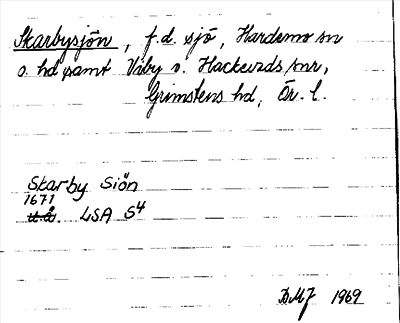 Skarbysjön, f.d. sjö, Hardemo sn
o. hd samt Viby o. Hackvads snr,
Grimstens hd, Ör. l.
Skarby Siön
1671
u.å. LSA S4
DMJ 1969